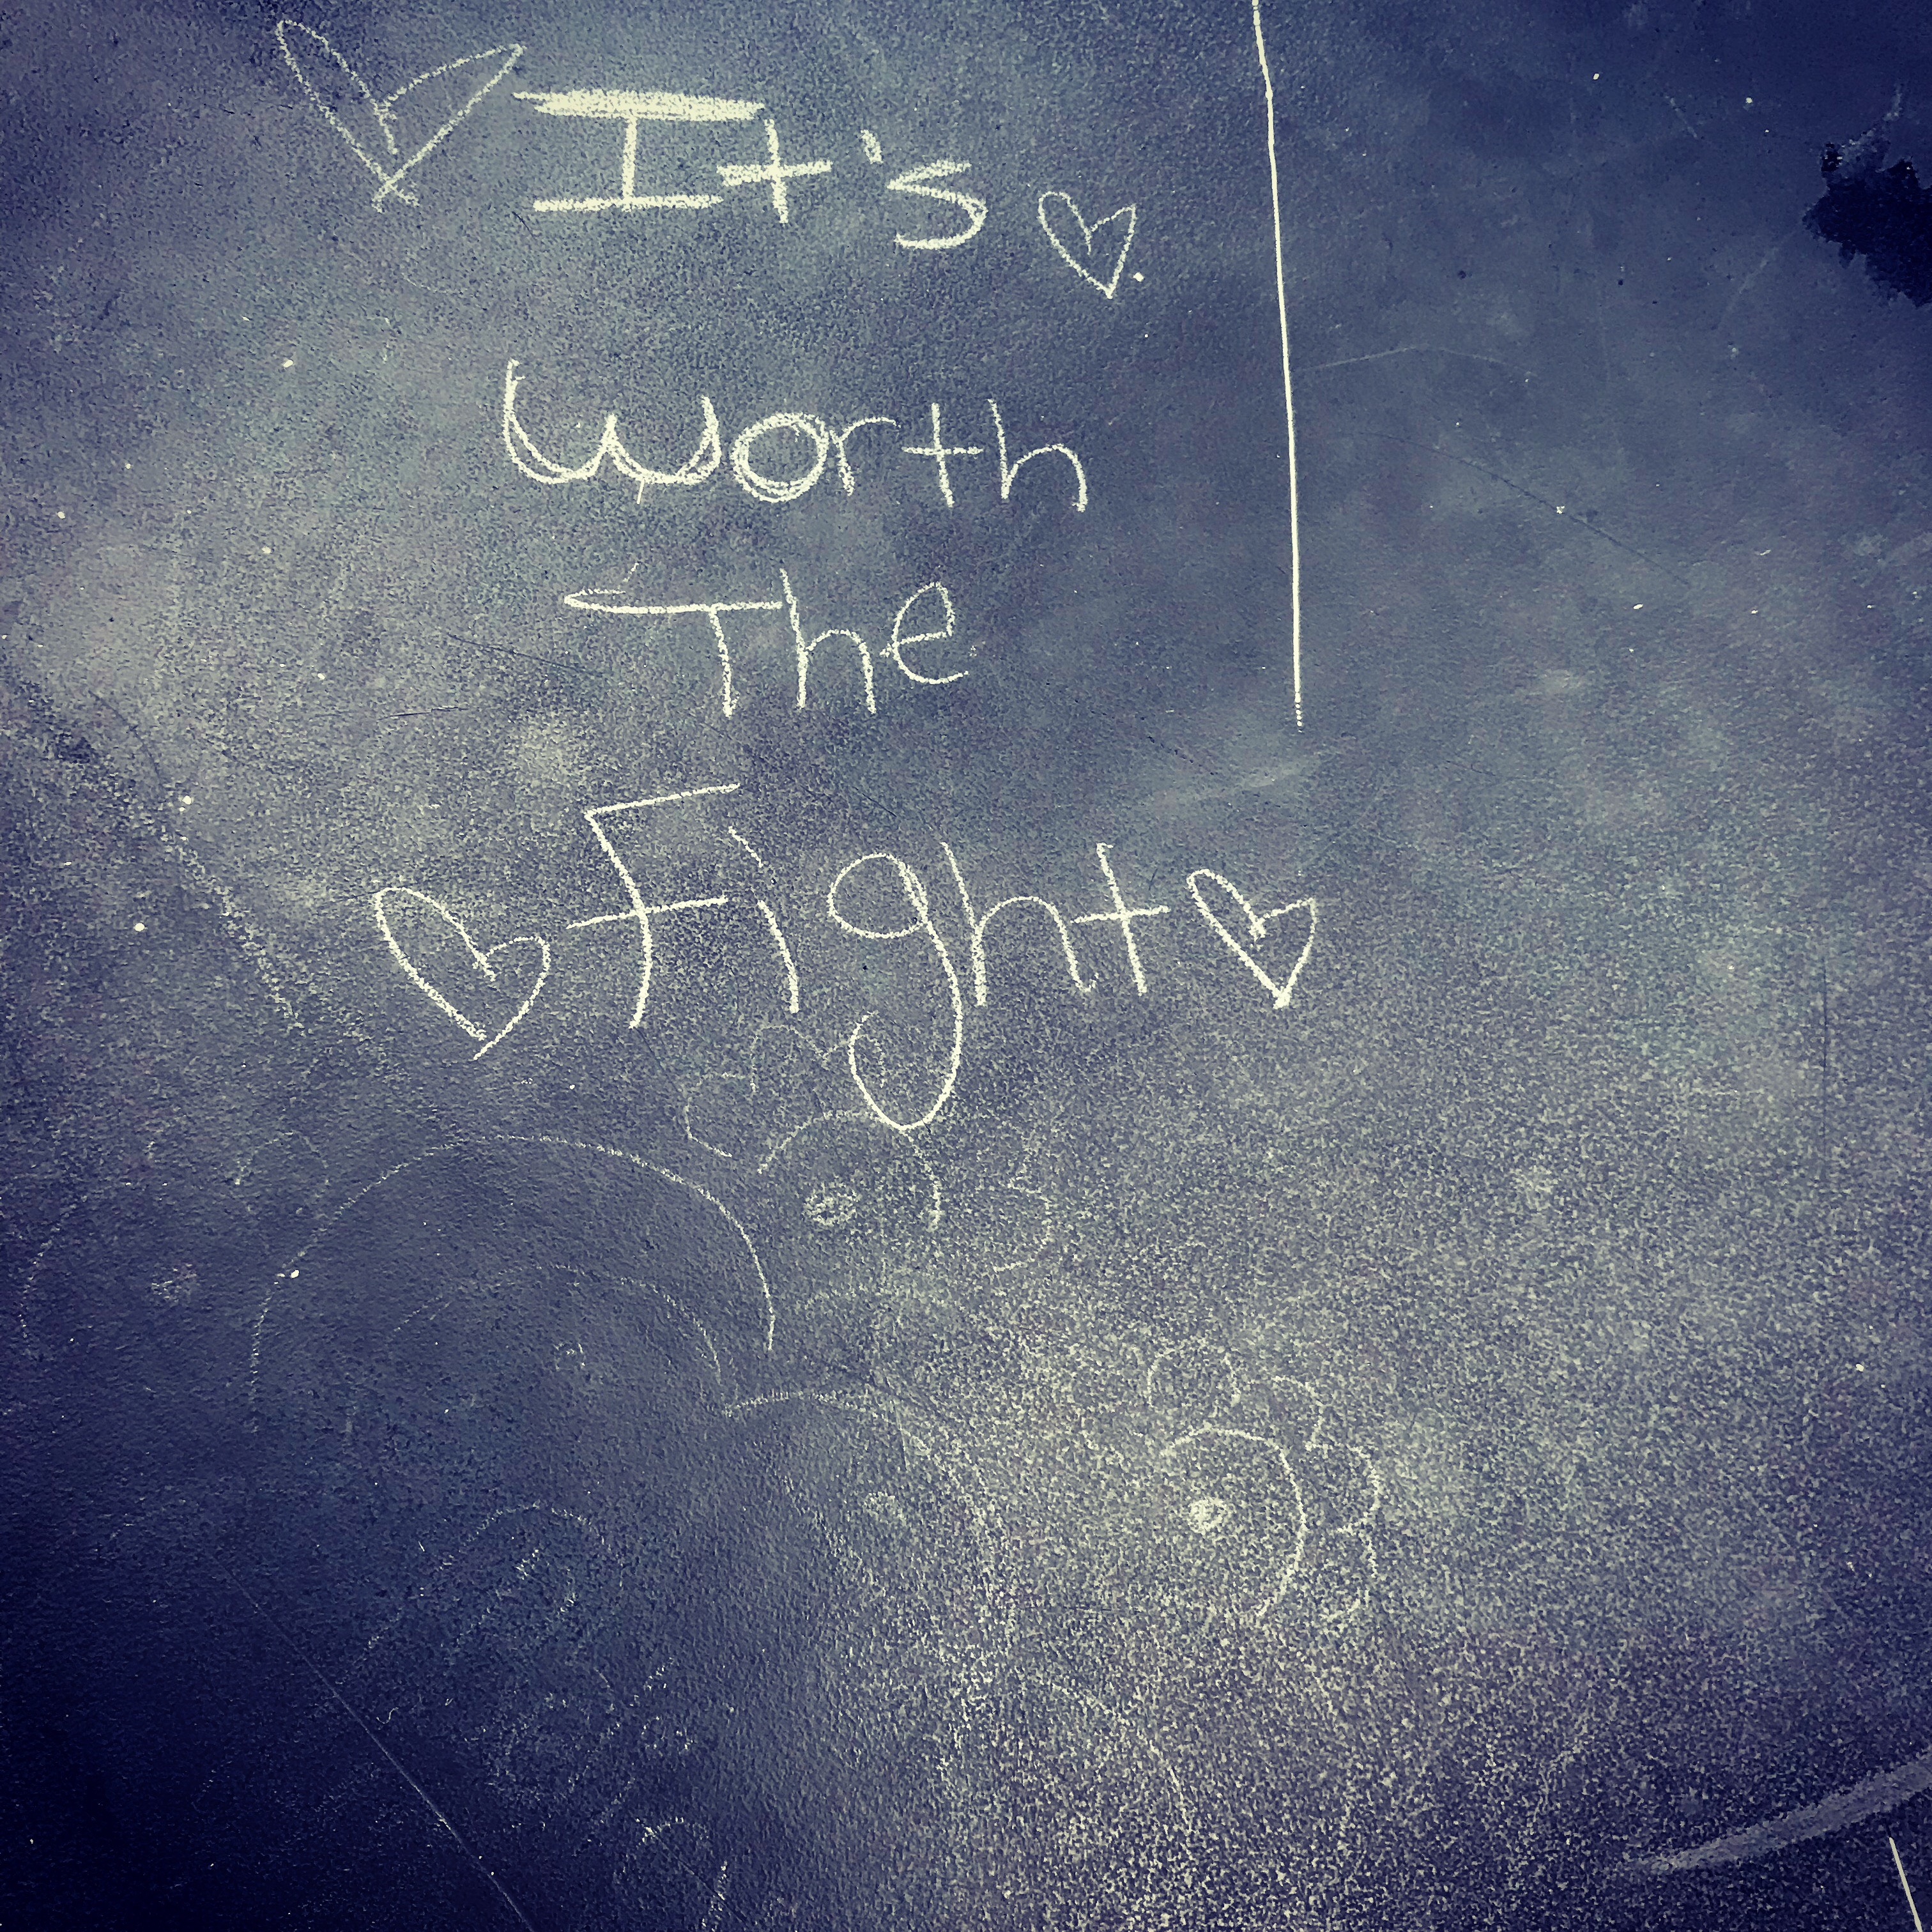 It's
Worth
The
Fight